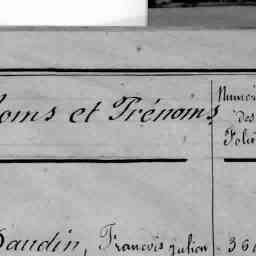 oms et Prénoms
Numér
des
Folio
Daudin, François julien 360